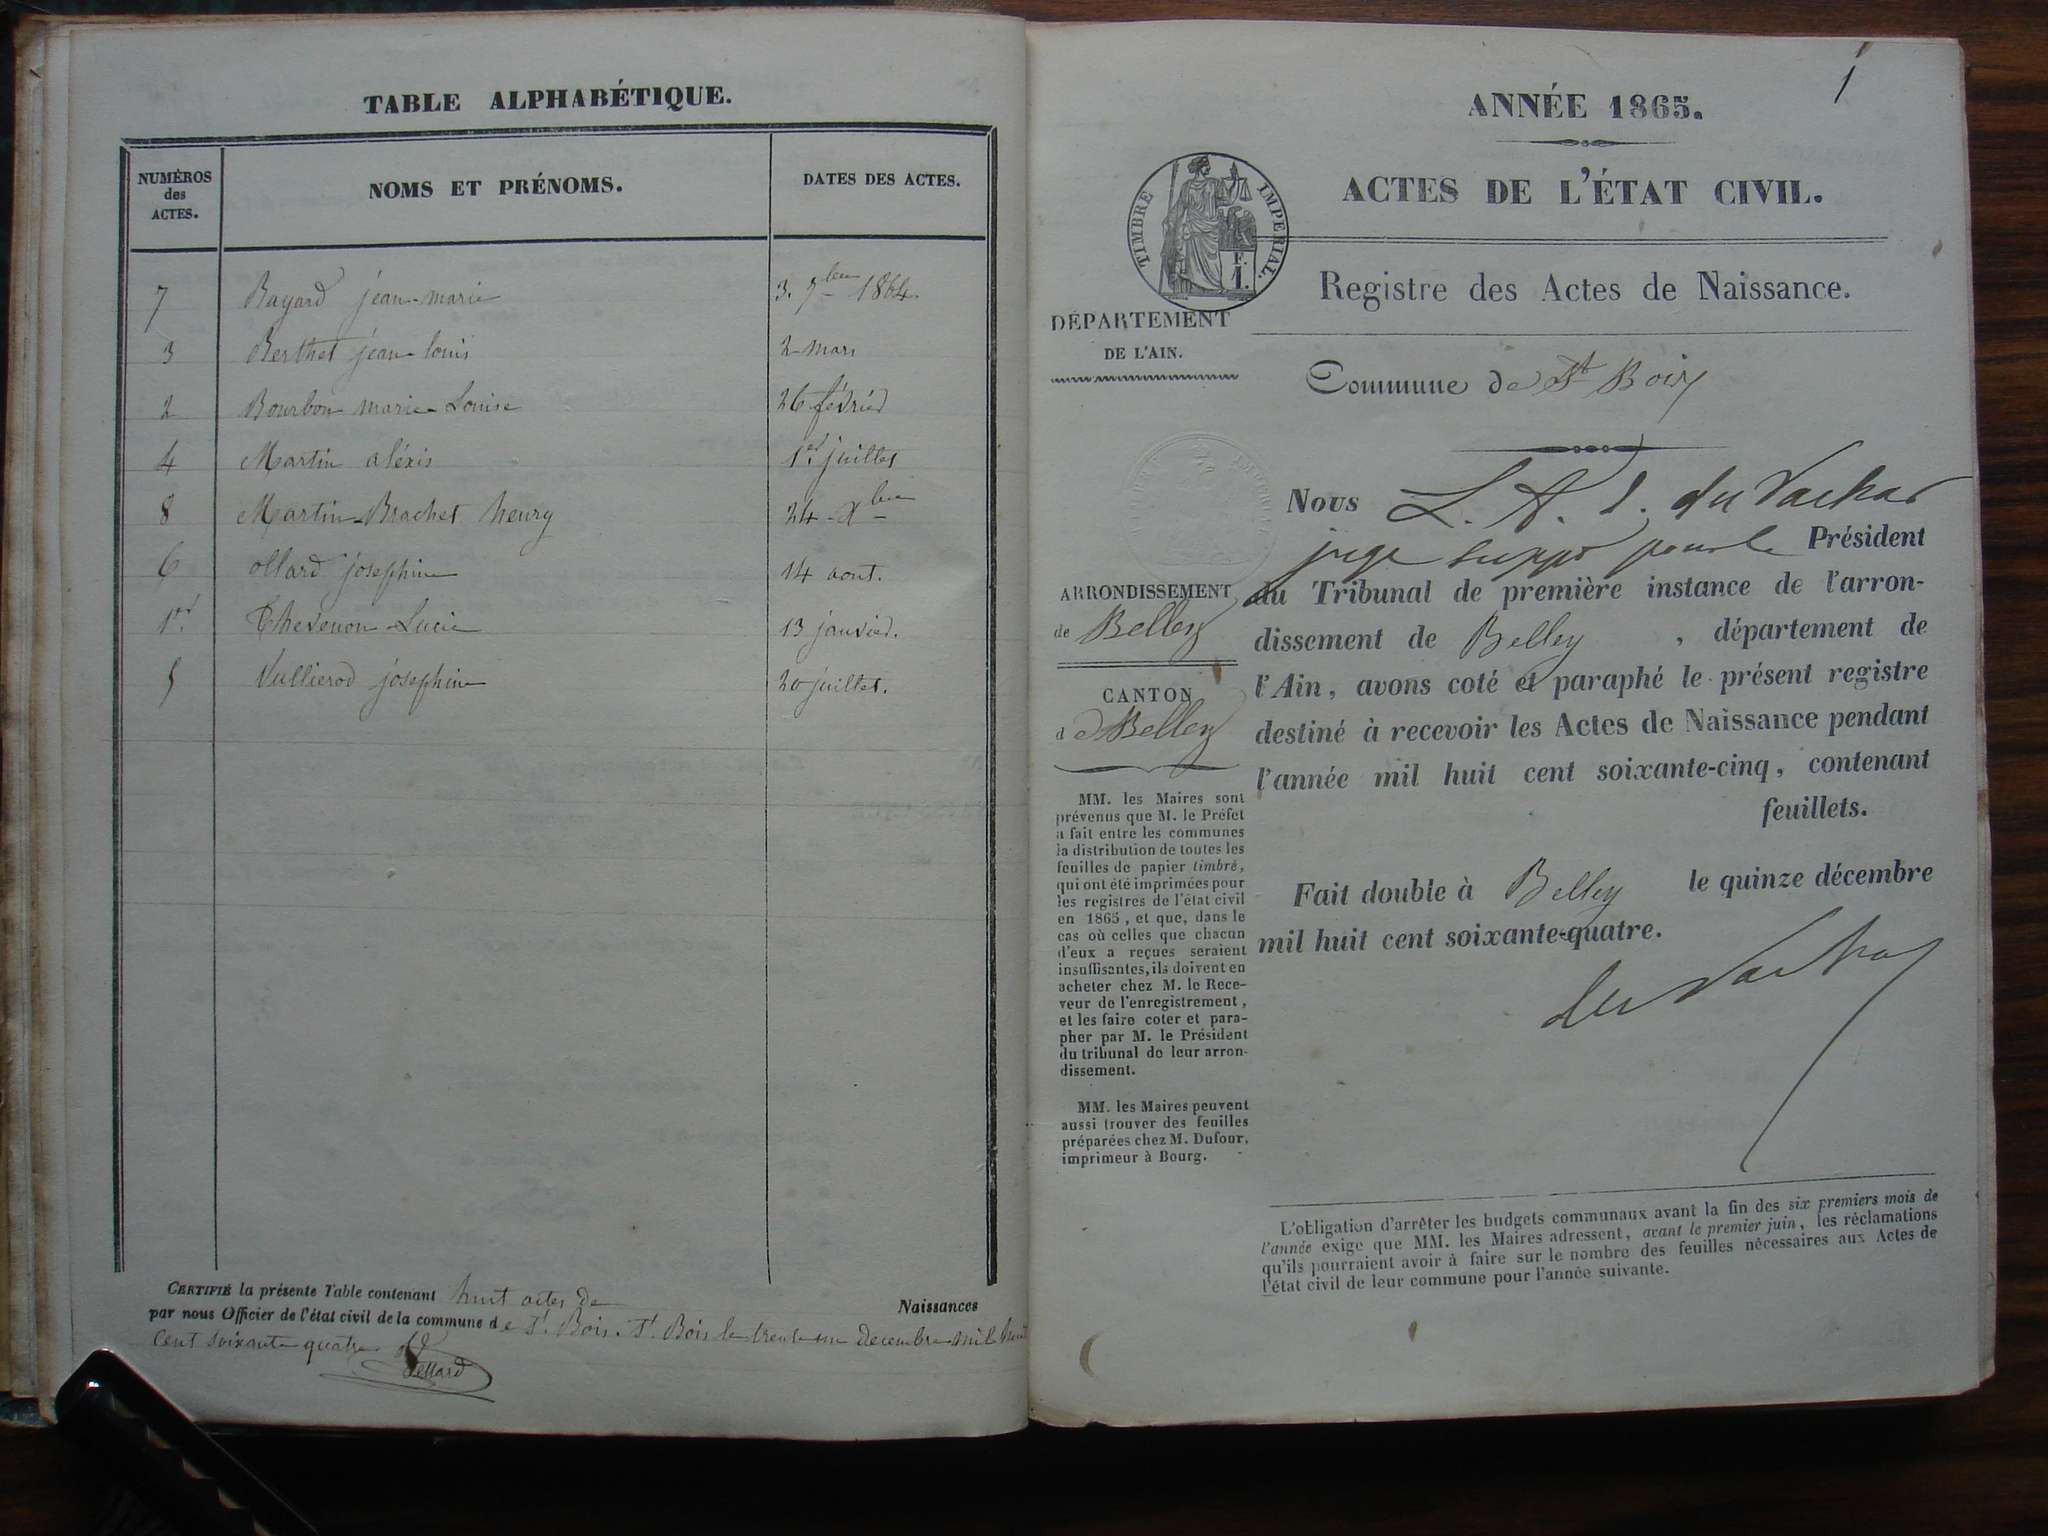 TABLE ALPHABÉTIQUE.
NUMÉROS des ACTES.
NOMS ET PRÉNOMS.
DATES DES ACTES.
7 Bayard jean-marie 3. 9bre 1864.
3 Berthet jean louis 2 mars
2 Bourbon marie-Louise 26 févried
4 Martin aléxis 1er juillet
8 Martin-Brachet henry 24 Xbre
6 ollard josephine 14 aout.
1er Thevenon Lucie 13 janvied.
5 Vullierod josephine 20 juillet.
CERTIFIÉ la présente Table contenant huit actes de Naissances
par nous Officier de l'état civil de la commune de St Bois. St Bois le trente un decembre mil huit
cent soixante quatre
1
ANNÉE 1865.
ACTES DE L'ÉTAT CIVIL.
TIMBRE IMPERIAL.
F.
1.
Registre des Actes de Naissance.
DÉPARTEMENT
DE L'AIN.
Commune de St Bois
ARRONDISSEMENT
de Belley
CANTON
de Belley
MM. les Maires sont
prévenus que M. le Préfet
a fait entre les communes
la distribution de toutes les
feuilles de papier timbré,
qui ont été imprimées pour
les registres de l'état civil
en 1865, et que, dans le
cas où celles que chacun
d'eux a reçues seraient
insuffisantes, ils doivent en
acheter chez M. le Rece-
veur de l'enregistrement,
et les faire coter et para-
pher par M. le Président
du tribunal de leur arron-
dissement.
MM. les Maires peuvent
aussi trouver des feuilles
préparées chez M. Dufour,
imprimeur à Bourg.
Nous L. A. du Vachat
juge suppt pour le Président
du Tribunal de première instance de l'arron-
dissement de Belley, département de
l'Ain, avons coté et paraphé le présent registre
destiné à recevoir les Actes de Naissance pendant
l'année mil huit cent soixante-cinq, contenant
feuillets.
Fait double à Belley le quinze décembre
mil huit cent soixante-quatre.
du Vachat
L'obligation d'arrêter les budgets communaux avant la fin des six premiers mois de
l'année exige que MM. les Maires adressent, avant le premier juin, les réclamations
qu'ils pourraient avoir à faire sur le nombre des feuilles nécessaires aux Actes de
l'état civil de leur commune pour l'année suivante.